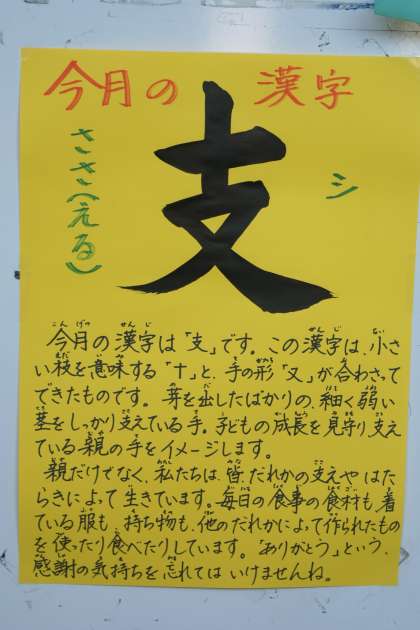 今月の 漢字
支
ささ(える)
シ
今月の漢字は「支」です。この漢字は、小さ
い枝を意味する「十」と、手の形「又」が合わさって
できたものです。芽を出したばかりの、細く弱い
茎をしっかり支えている手。子どもの成長を見守り支え
ている親の手をイメージします。
親だけでなく、私たちは、皆、だれかの支えや はた
らきによって生きています。毎日の食事の食材も、着
ている服も、持ち物も、他のだれかによって作られたもの
を使ったり食べたりしています。「ありがとう」という、
感謝の気持ちを忘れては いけませんね。